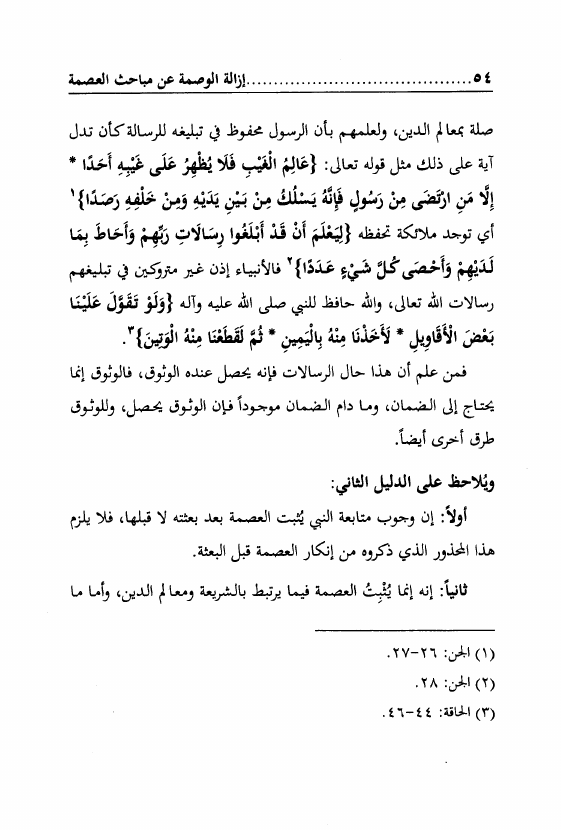 ٥٤........................................... إزالة الوصمة عن مباحث العصمة
صلة بمعالم الدين، ولعلمهم بأن الرسول محفوظ في تبليغه للرسالة كأن تدل
آية على ذلك مثل قوله تعالى: {عَالِمُ الْغَيْبِ فَلَا يُظْهِرُ عَلَى غَيْبِهِ أَحَدًا *
إِلَّا مَنِ ارْتَضَى مِنْ رَسُولٍ فَإِنَّهُ يَسْلُكُ مِنْ بَيْنِ يَدَيْهِ وَمِنْ خَلْفِهِ رَصَدًا}١
أي توجد ملائكة تحفظه {لِيَعْلَمَ أَنْ قَدْ أَبْلَغُوا رِسَالَاتِ رَبِّهِمْ وَأَحَاطَ بِمَا
لَدَيْهِمْ وَأَحْصَى كُلَّ شَيْءٍ عَدَدًا}٢ فالأنبياء إذن غير متروكين في تبليغهم
رسالات الله تعالى، والله حافظ للنبي صلى الله عليه وآله {وَلَوْ تَقَوَّلَ عَلَيْنَا
بَعْضَ الْأَقَاوِيلِ * لَأَخَذْنَا مِنْهُ بِالْيَمِينِ * ثُمَّ لَقَطَعْنَا مِنْهُ الْوَتِينَ}٣.
فمن علم أن هذا حال الرسالات فإنه يحصل عنده الوثوق، فالوثوق إنما
يحتاج إلى الضمان، وما دام الضمان موجوداً فإن الوثوق يحصل، وللوثوق
طرق أخرى أيضاً.
ويُلاحظ على الدليل الثاني:
أولاً: إن وجوب متابعة النبي يُثبت العصمة بعد بعثته لا قبلها، فلا يلزم
هذا المحذور الذي ذكروه من إنكار العصمة قبل البعثة.
ثانياً: إنه إنما يُثْبِتُ العصمة فيما يرتبط بالشريعة ومعالم الدين، وأما ما
(١) الجن: ٢٦-٢٧.
(٢) الجن: ٢٨.
(٣) الحاقة: ٤٤-٤٦.